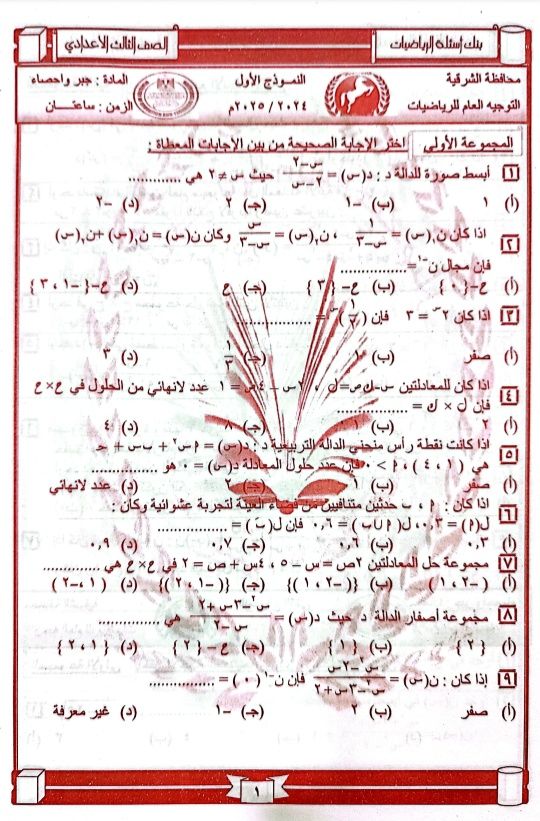 بنك أسئلة الرياضيات
الصف الثالث الأعدادي
محافظة الشرقية النموذج الأول المادة : جبر واحصاء
التوجيه العام للرياضيات ٢٠٢٤ / ٢٠٢٥م الزمن : ساعتان
المجموعة الأولى اختر الإجابة الصحيحة من بين الإجابات المعطاة :
١ أبسط صورة للدالة د : د(س) = (س-٢)/(٢-س) حيث س ≠ ٢ هي ............
(أ) ١ (ب) -١ (جـ) ٢ (د) -٢
٢ اذا كان ن١(س) = ١/(س-٣) ، ن٢(س) = س/(س-٣) وكان ن(س) = ن١(س) + ن٢(س)
فإن مجال ن-١ = ............
(أ) ح-{٠} (ب) ح-{٣} (جـ) ح (د) ح-{-١ ، ٣}
٣ اذا كان ٢س = ٣ فإن (١/٢)س = ............
(أ) صفر (ب) ١ (جـ) ١/٣ (د) ٣
٤ اذا كان للمعادلتين س-ك ص=ل ، ٢س-٤ص = ١ عدد لانهائي من الحلول في ح×ح
فإن ل × ك = ............
(أ) ٢ (ب) ١ (جـ) ٨ (د) ٤
٥ اذا كانت نقطة رأس منحني الدالة التربيعية د : د(س) = م س٢ + ب س + جـ
هي (١ ، ٤) ، م > ٠ فإن عدد حلول المعادلة د(س) = ٠ هو ............
(أ) صفر (ب) ١ (جـ) ٢ (د) عدد لانهائي
٦ اذا كان : م ، ب حدثين متنافيين من فضاء العينة لتجربة عشوائية وكان :
ل(م) = ٠,٣ ، ل(م ∪ ب) = ٠,٦ فإن ل(بَ) = ............
(أ) ٠,٣ (ب) ٠,٦ (جـ) ٠,٧ (د) ٠,٩
٧ مجموعة حل المعادلتين ٢ص = س - ٥ ، ٤س + ص = ٢ في ح×ح هي ............
(أ) (-٢ ، ١) (ب) {(-٢ ، ١)} (جـ) {(-١ ، ٢)} (د) (١ ، -٢)
٨ مجموعة أصفار الدالة د حيث د(س) = (س٢-٣س+٢)/(س-٢) هي ............
(أ) {٢} (ب) {١} (جـ) ح - {٢} (د) {١ ، ٢}
٩ إذا كان : ن(س) = (س٢-٢س)/(س٢-٣س+٢) فإن ن-١(٠) = ............
(أ) صفر (ب) ٢ (جـ) -١ (د) غير معرفة
١